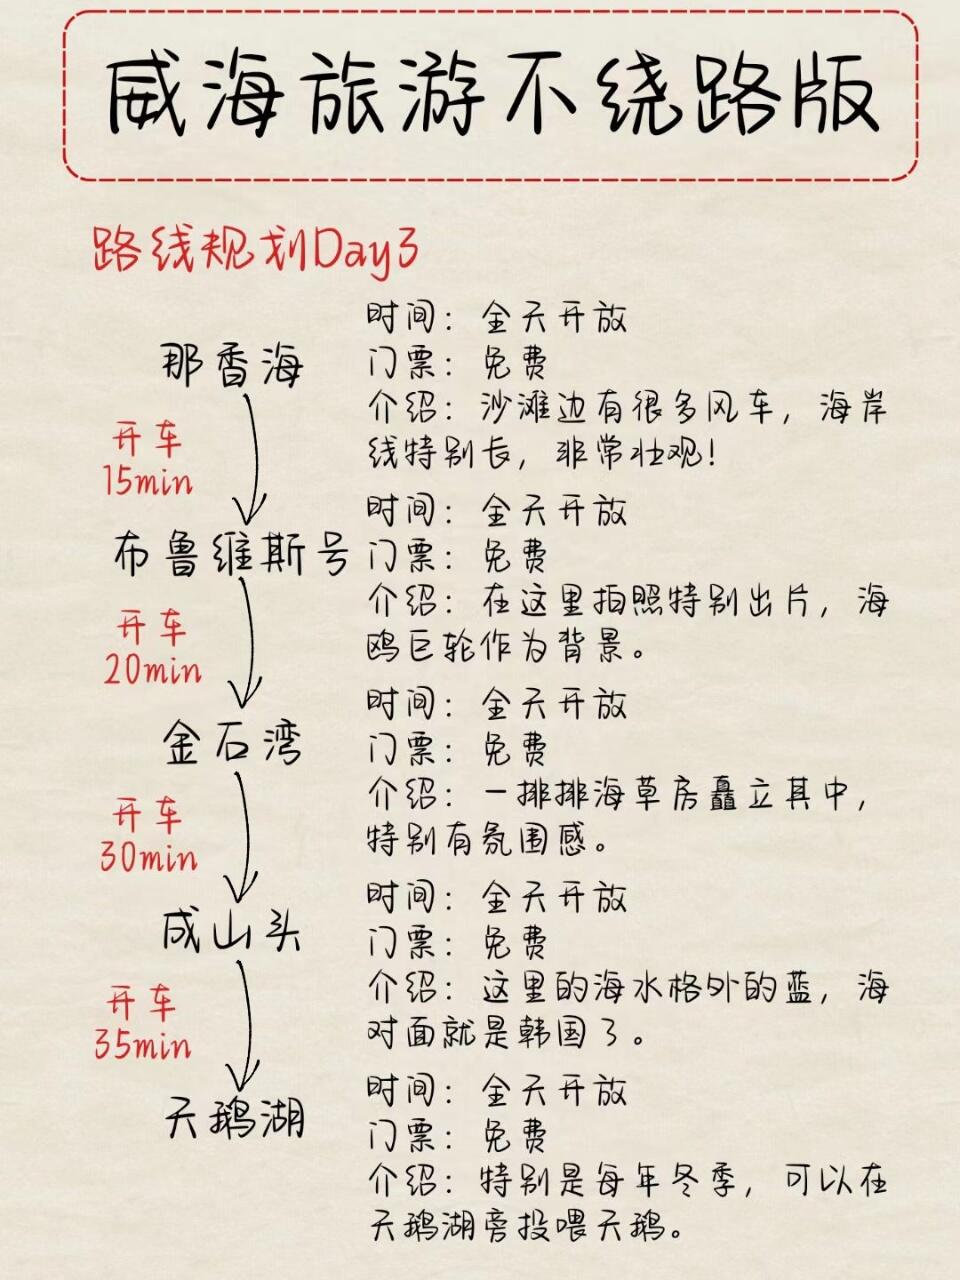 威海旅游不绕路版
路线规划Day3
那香海
时间：全天开放
门票：免费
介绍：沙滩边有很多风车，海岸
线特别长，非常壮观！
开车
15min
布鲁维斯号
时间：全天开放
门票：免费
介绍：在这里拍照特别出片，海
鸥巨轮作为背景。
开车
20min
金石湾
时间：全天开放
门票：免费
介绍：一排排海草房矗立其中，
特别有氛围感。
开车
30min
成山头
时间：全天开放
门票：免费
介绍：这里的海水格外的蓝，海
对面就是韩国了。
开车
35min
天鹅湖
时间：全天开放
门票：免费
介绍：特别是每年冬季，可以在
天鹅湖旁投喂天鹅。